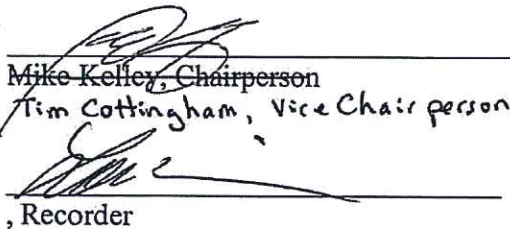 Mike Kelley, Chairperson
Tim Cottingham, Vice Chair person
, Recorder